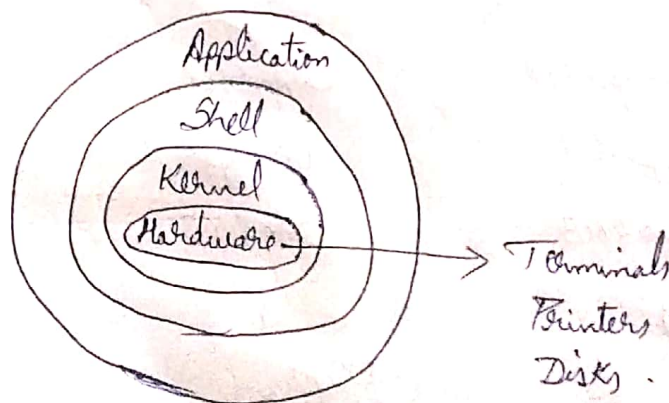 Application
Shell
Kernel
Hardware
Terminals
Printers
Disks.